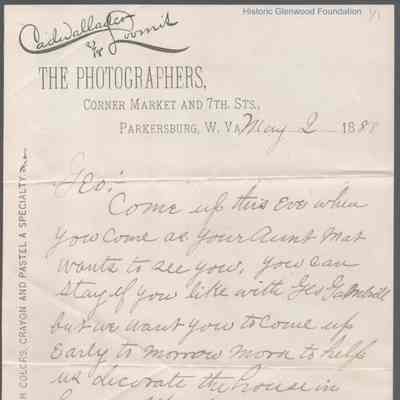 Historic Glenwood Foundation
Cadwallader
& Loomis
THE PHOTOGRAPHERS,
CORNER MARKET AND 7TH. STS.,
PARKERSBURG, W. VA. May 2 1888
Geo:-
Come up this Eve when
you come as your Aunt Mat
wants to see you, you can
stay if you like with Geo
but we want you to come up
Early to morrow morn to help
us decorate the house in
COLORS, CRAYON AND PASTEL A SPECIALTY